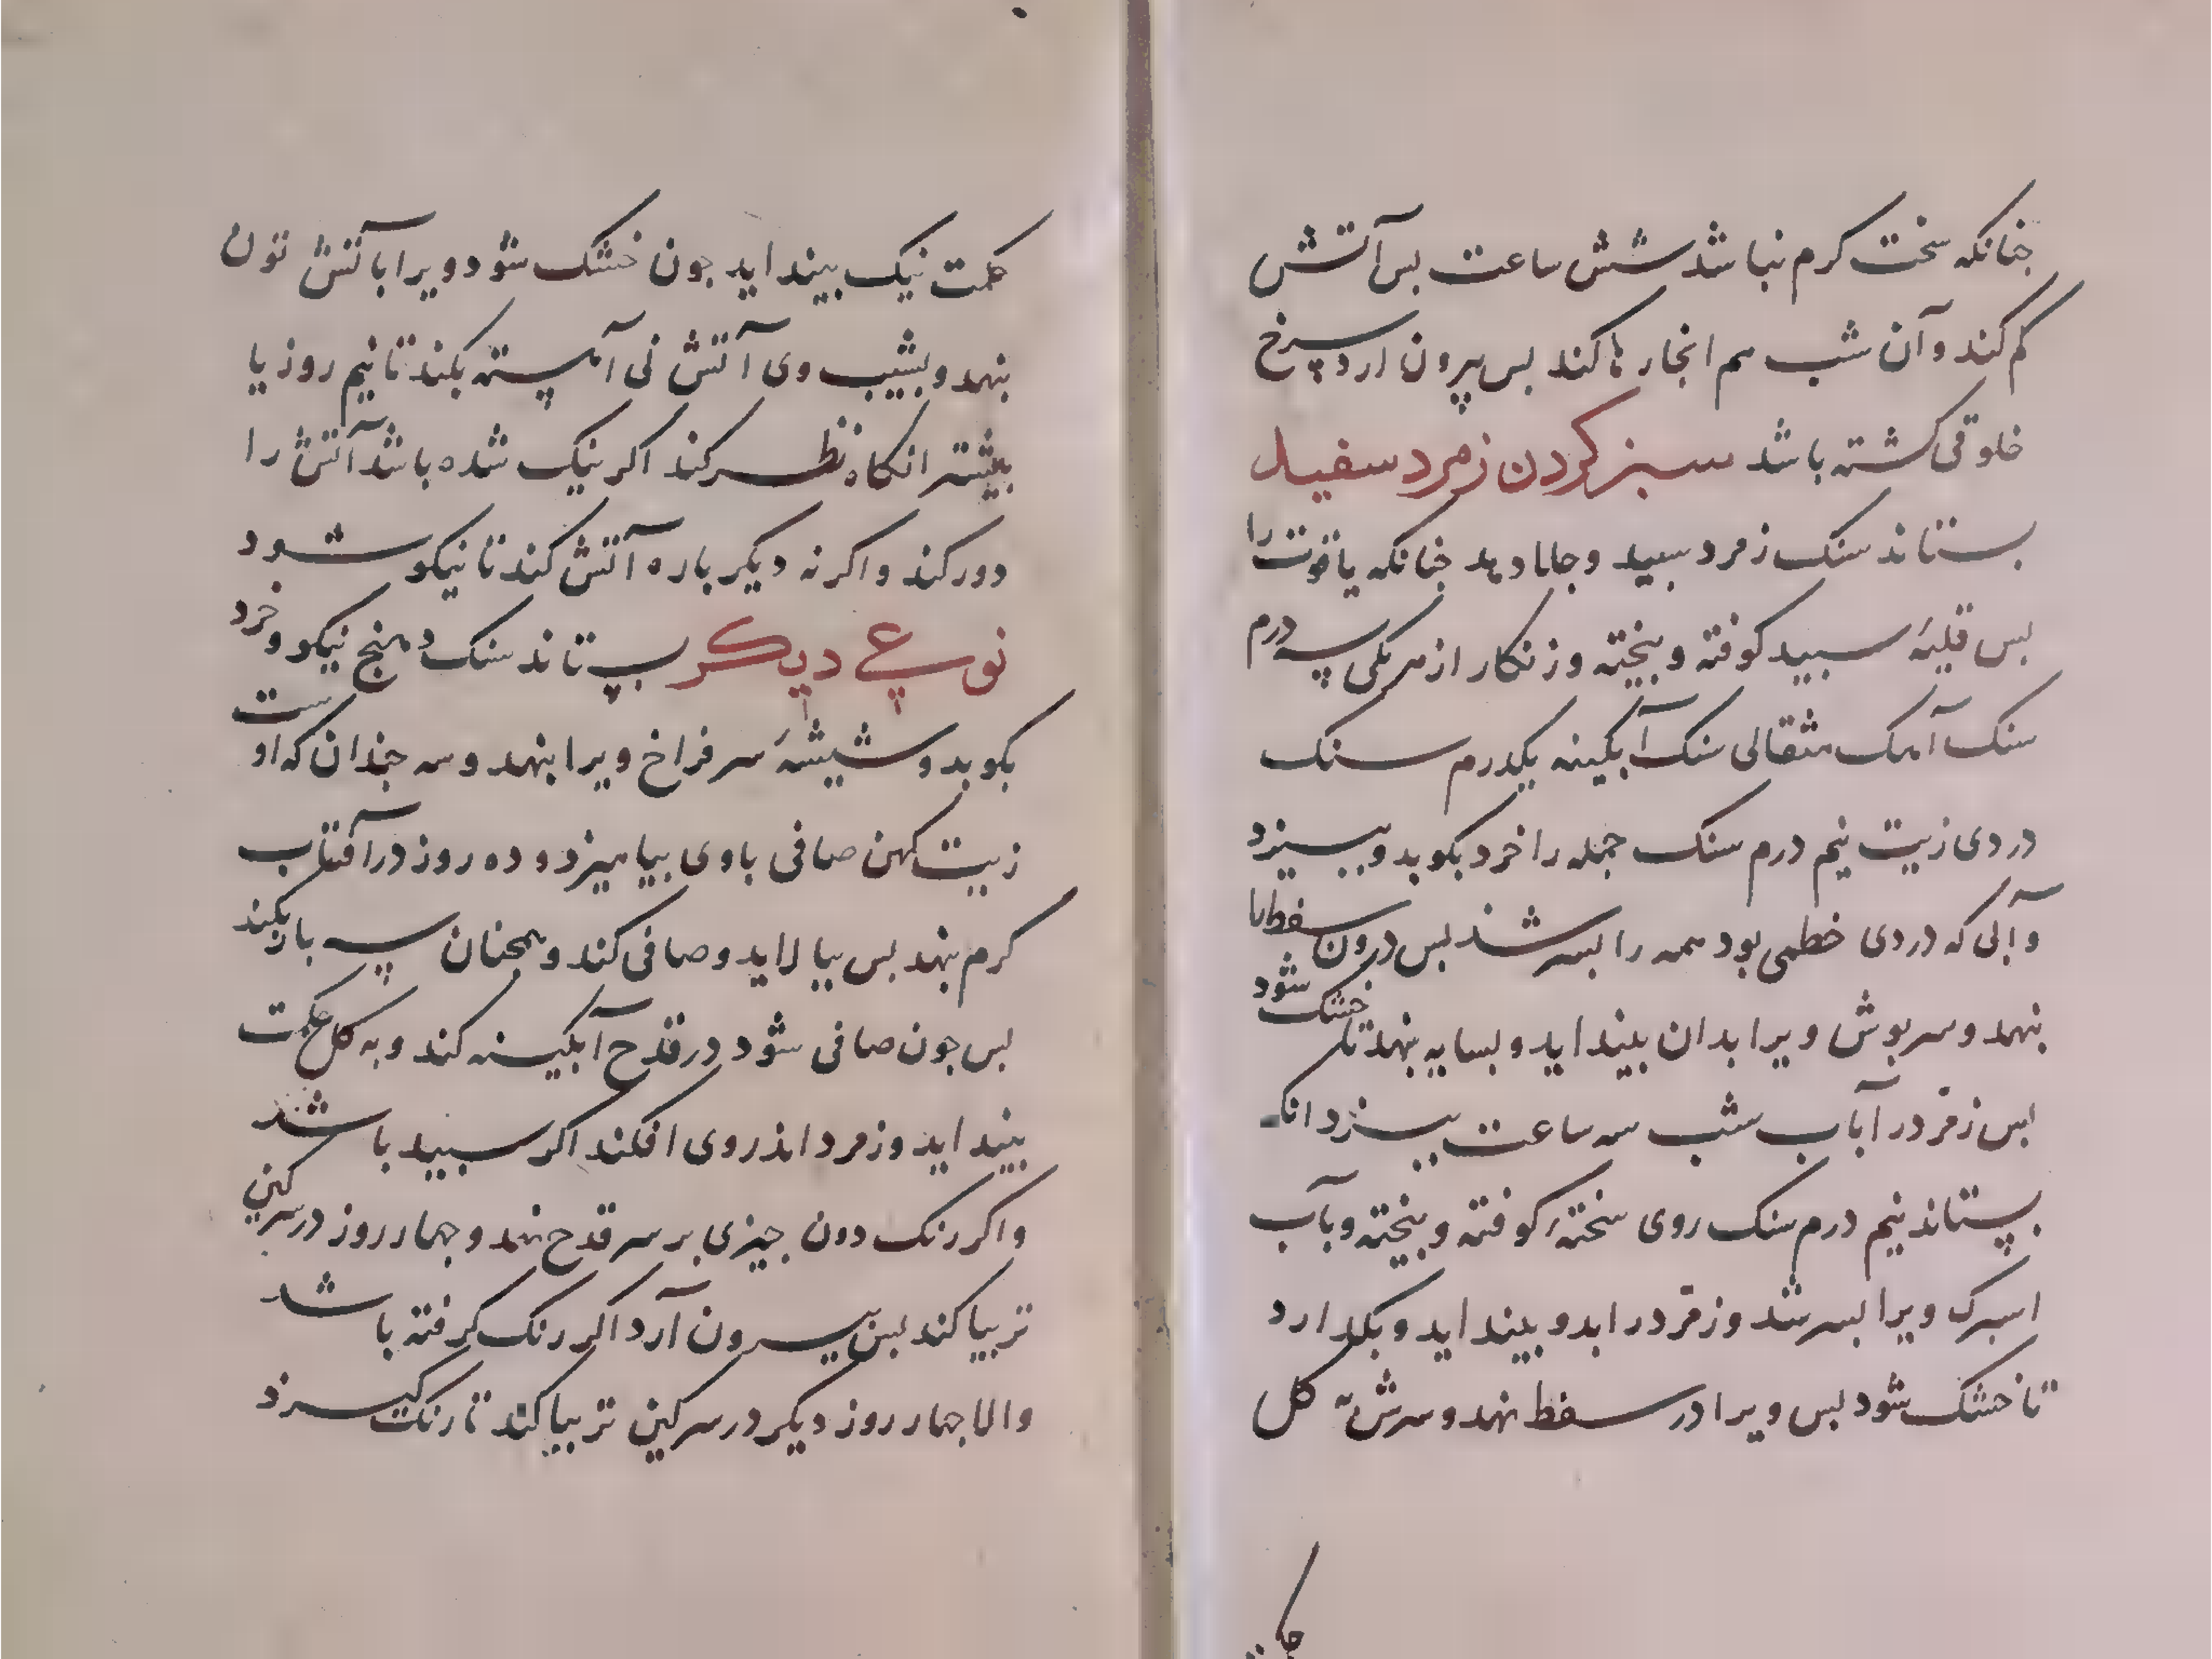 جنانکه سخت کرم نباشد شش ساعت بس آتش
کم کند و آن شب هم انجا رها کند بس بیرون ارد سرخ
خلوقی کشته باشد سبز کردن زمرد سفید
بستاند سنک زمرد سبید و جلا دهد جنانکه یاقوت را
بس قلیهٔ سبید کوفته و بیخته و زنکار از هر یکی سه درم
سنک آهک مثقالی سنک آبکینه یکدرم سنک
دردی زیت نیم درم سنک جمله را خرد بکوبد و ببیزد
و آبی که دردی خطمی بود همه را بسرشد بس درون سفطها
نهد و سربوش ویرا بدان بینداید و بسایه بنهد تا خشک شود
بس زمرد در آب شب سه ساعت ببزد انکه
بستاند نیم درم سنک روی سختهٔ کوفته و بیخته و بآب
اسبرک ویرا بسرشد و زمرد در ابدو بینداید و بکذارد
تا خشک شود بس ویرا در سفط نهد و سرش به کل
حکمت
حکمت نیک بینداید جون خشک شود ویرا با آتش تون
بنهد و بشیب وی آتش نی آهسته بکند تا نیم روز یا
بیشتر انکاه نظر کند اکر نیک شده باشد آتش را
دور کند و اکر نه دیکر باره آتش کند تا نیکو شود
نوعی دیکر بستاند سنک دهنج نیکو و خرد
بکوبد و شیشهٔ سر فراخ ویرا بنهد و سه جندان که اوست
زیت کهن صافی باوی بیامیزد و ده روز در آفتاب
کرم بنهد بس بیالاید و صافی کند و همجنان سه بار بکند
بس جون صافی شود در قدح آبکینه کند و به کل حکمت
بینداید و زمرد اندر وی افکند اکر سبید باشد
و اکر رنک دون جیزی بر سر قدح نهد و جهار روز در سرکین
تر بیا کند بس بیرون آرد اکر رنک کرفته باشد
و الا جهار روز دیکر در سرکین تر بیا کند تا رنک کیرد